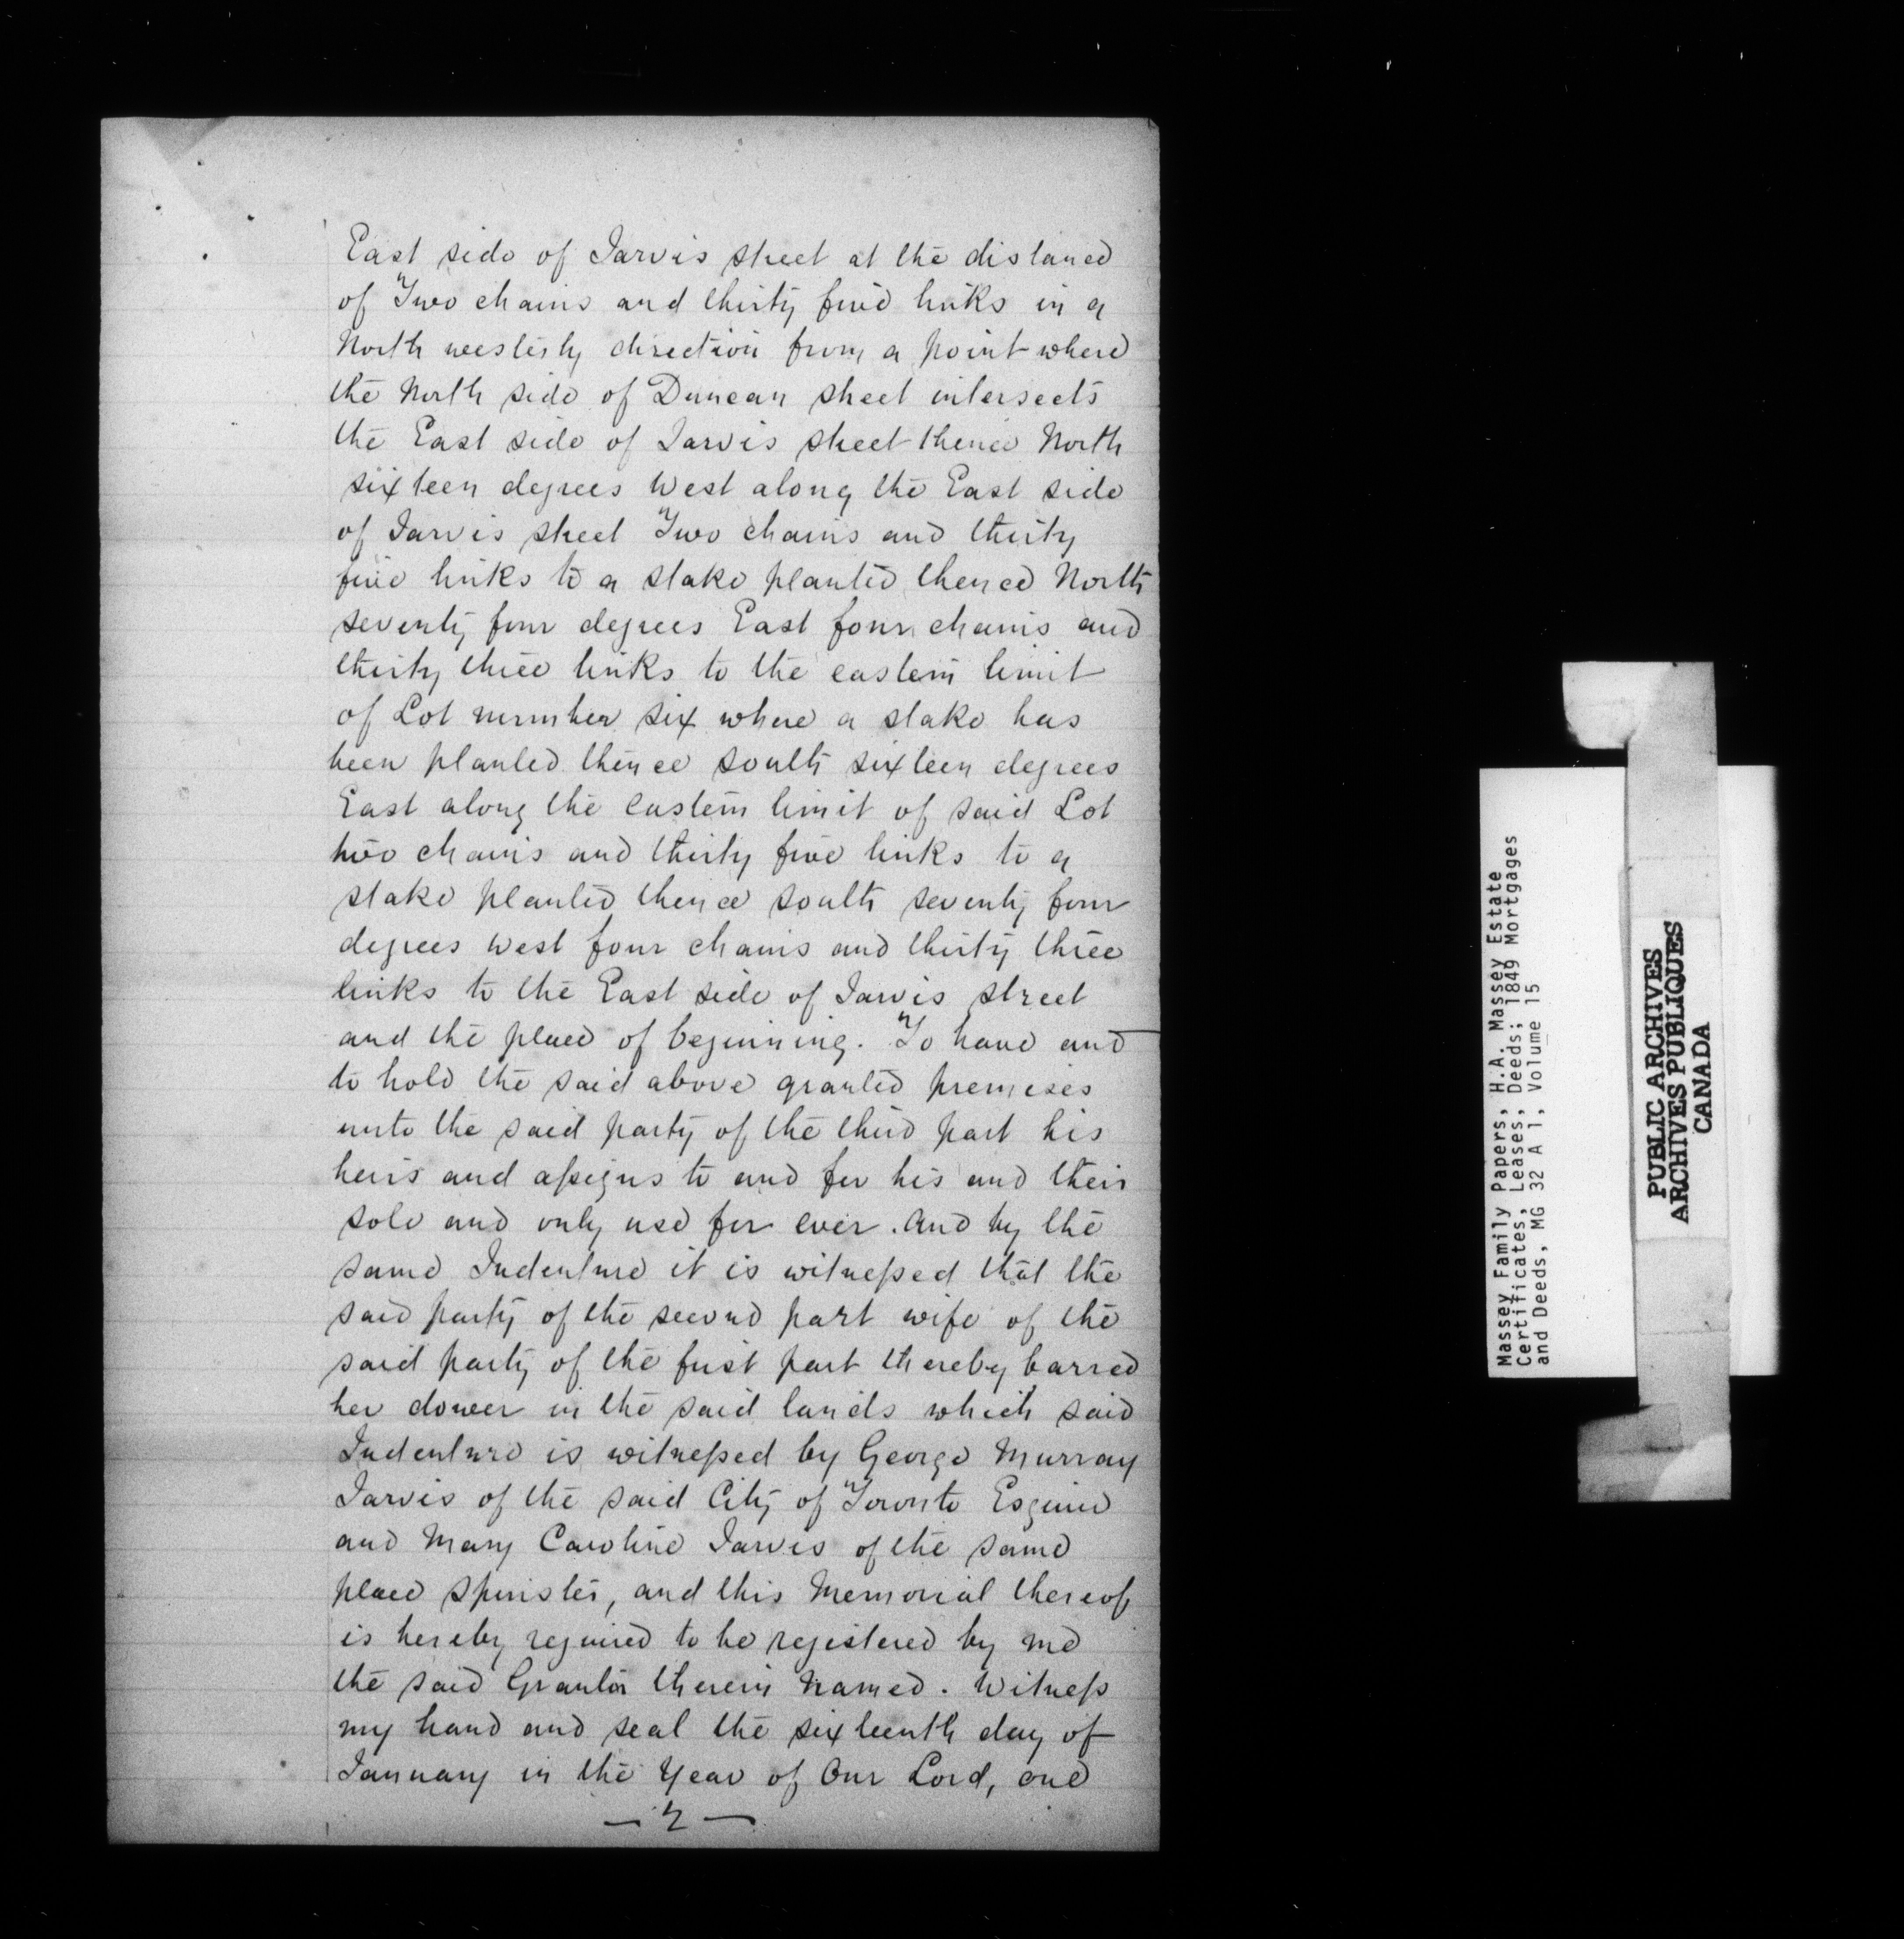 East side of Jarvis street at the distance
of Two chains and thirty five links in a
North westerly direction from a point where
the North side of Duncan street intersects
the East side of Jarvis street thence North
sixteen degrees West along the East side
of Jarvis street Two chains and thirty
five links to a stake planted thence North
seventy four degrees East four chains and
thirty three links to the eastern limit
of Lot number six where a stake has
been planted thence south sixteen degrees
East along the eastern limit of said Lot
two chains and thirty five links to a
stake planted thence south seventy four
degrees West four chains and thirty three
links to the East side of Jarvis street
and the place of beginning. To have and
to hold the said above granted premises
unto the said party of the third part his
heirs and assigns to and for his and their
sole and only use for ever. And by the
same Indenture it is witnessed that the
said party of the second part wife of the
said party of the first part thereby barred
her dower in the said lands which said
Indenture is witnessed by George Murray
Jarvis of the said City of Toronto Esquire
and Mary Caroline Jarvis of the same
place Spinster, and this Memorial thereof
is hereby required to be registered by me
the said Grantor therein Named. Witness
my hand and seal the sixteenth day of
January in the Year of Our Lord, one
— 2 —
Massey Family Papers, H.A. Massey Estate
Certificates, Leases, Deeds; 1849 Mortgages
and Deeds, MG 32 A 1, Volume 15
PUBLIC ARCHIVES
ARCHIVES PUBLIQUES
CANADA